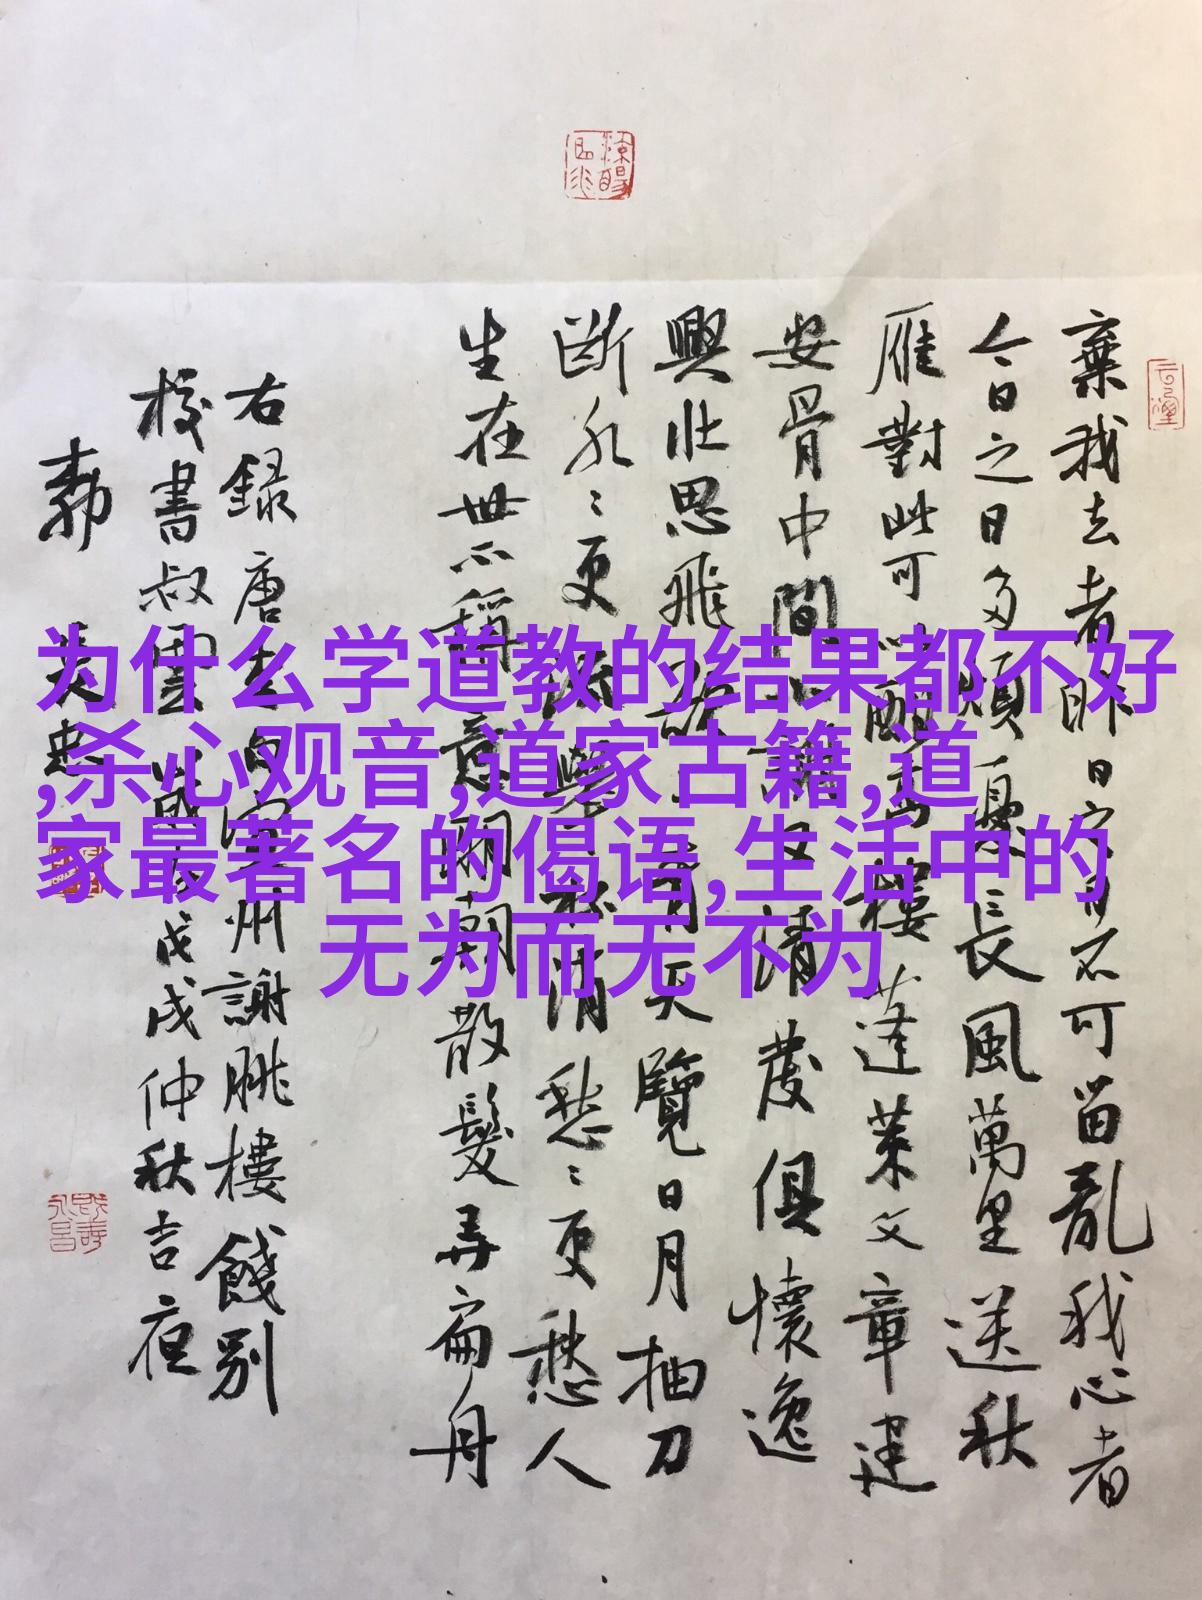 为什么学道教的结果都不好
,杀心观音,道家古籍,道
家最著名的偈语,生活中的
无为而无不为
棄我去者昨日之日不可留亂我心者
今日之日多煩憂長風萬里送秋
雁對此可以酣高樓蓬萊文章建
安骨中間小謝又清發俱懷逸
興壯思飛欲上青天覽日月抽刀
斷水〻更流舉杯消愁〻更愁人
生在世不稱意明朝散髮弄扁舟
右錄唐李白宣州謝朓樓餞別
校書叔雲歲戊戌仲秋吉夜